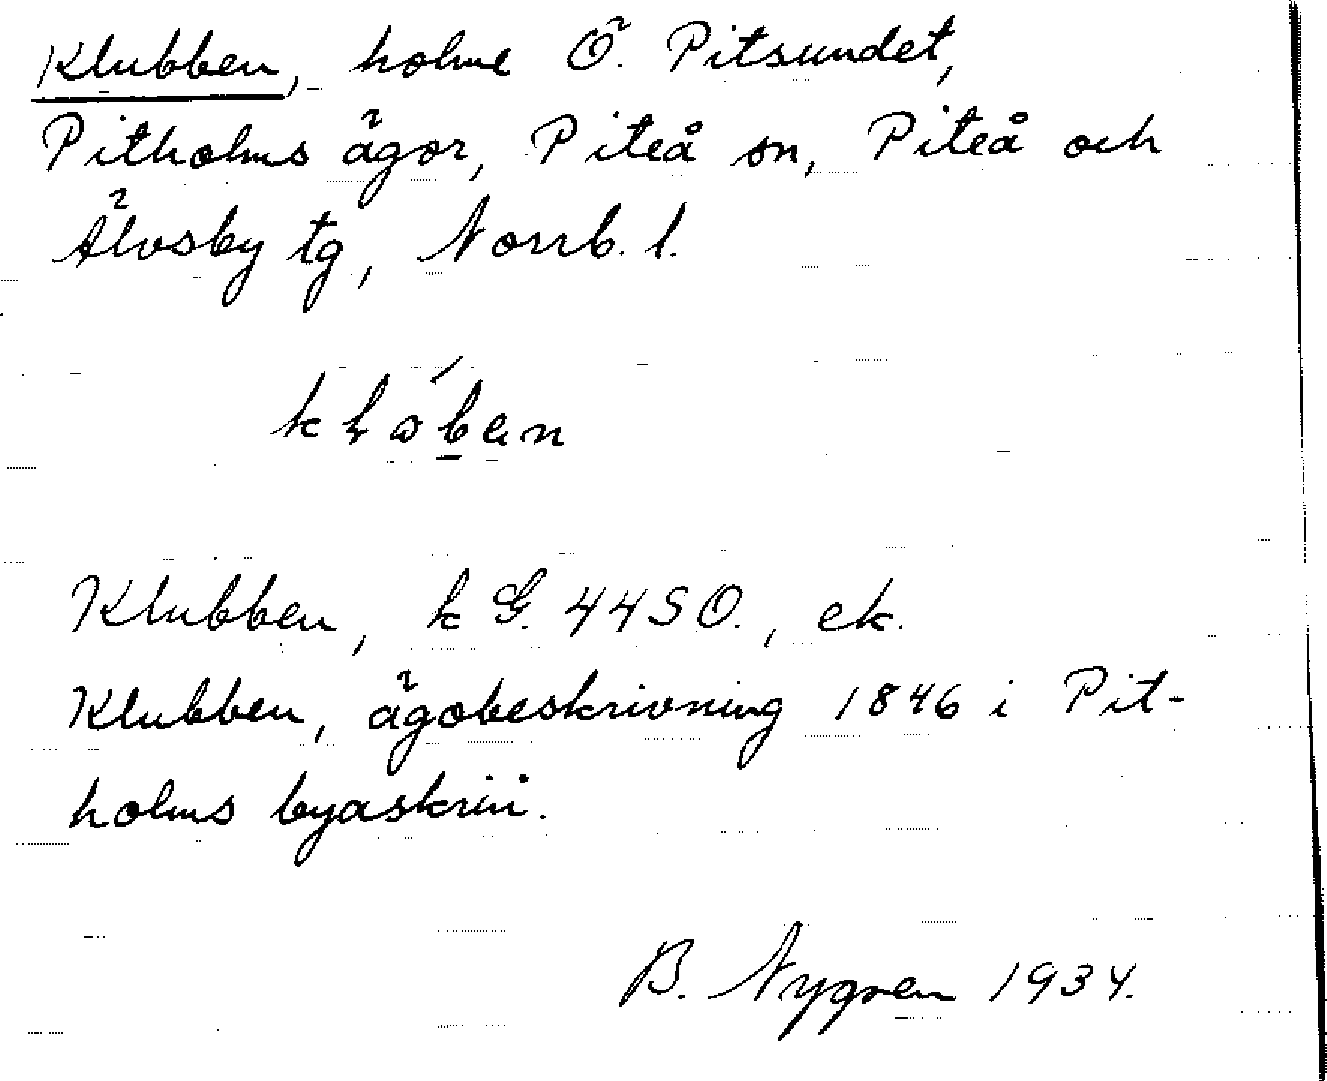 Klubben, holme Ö. Pitsundet,
Pitholms ägor, Piteå sn, Piteå och
Älvsby tg, Norrb. l.
Klubben, k G. 44 SO., ek.
Klubben, ägobeskrivning 1846 i Pit-
holms byaskrin.
B. Nygren 1934.